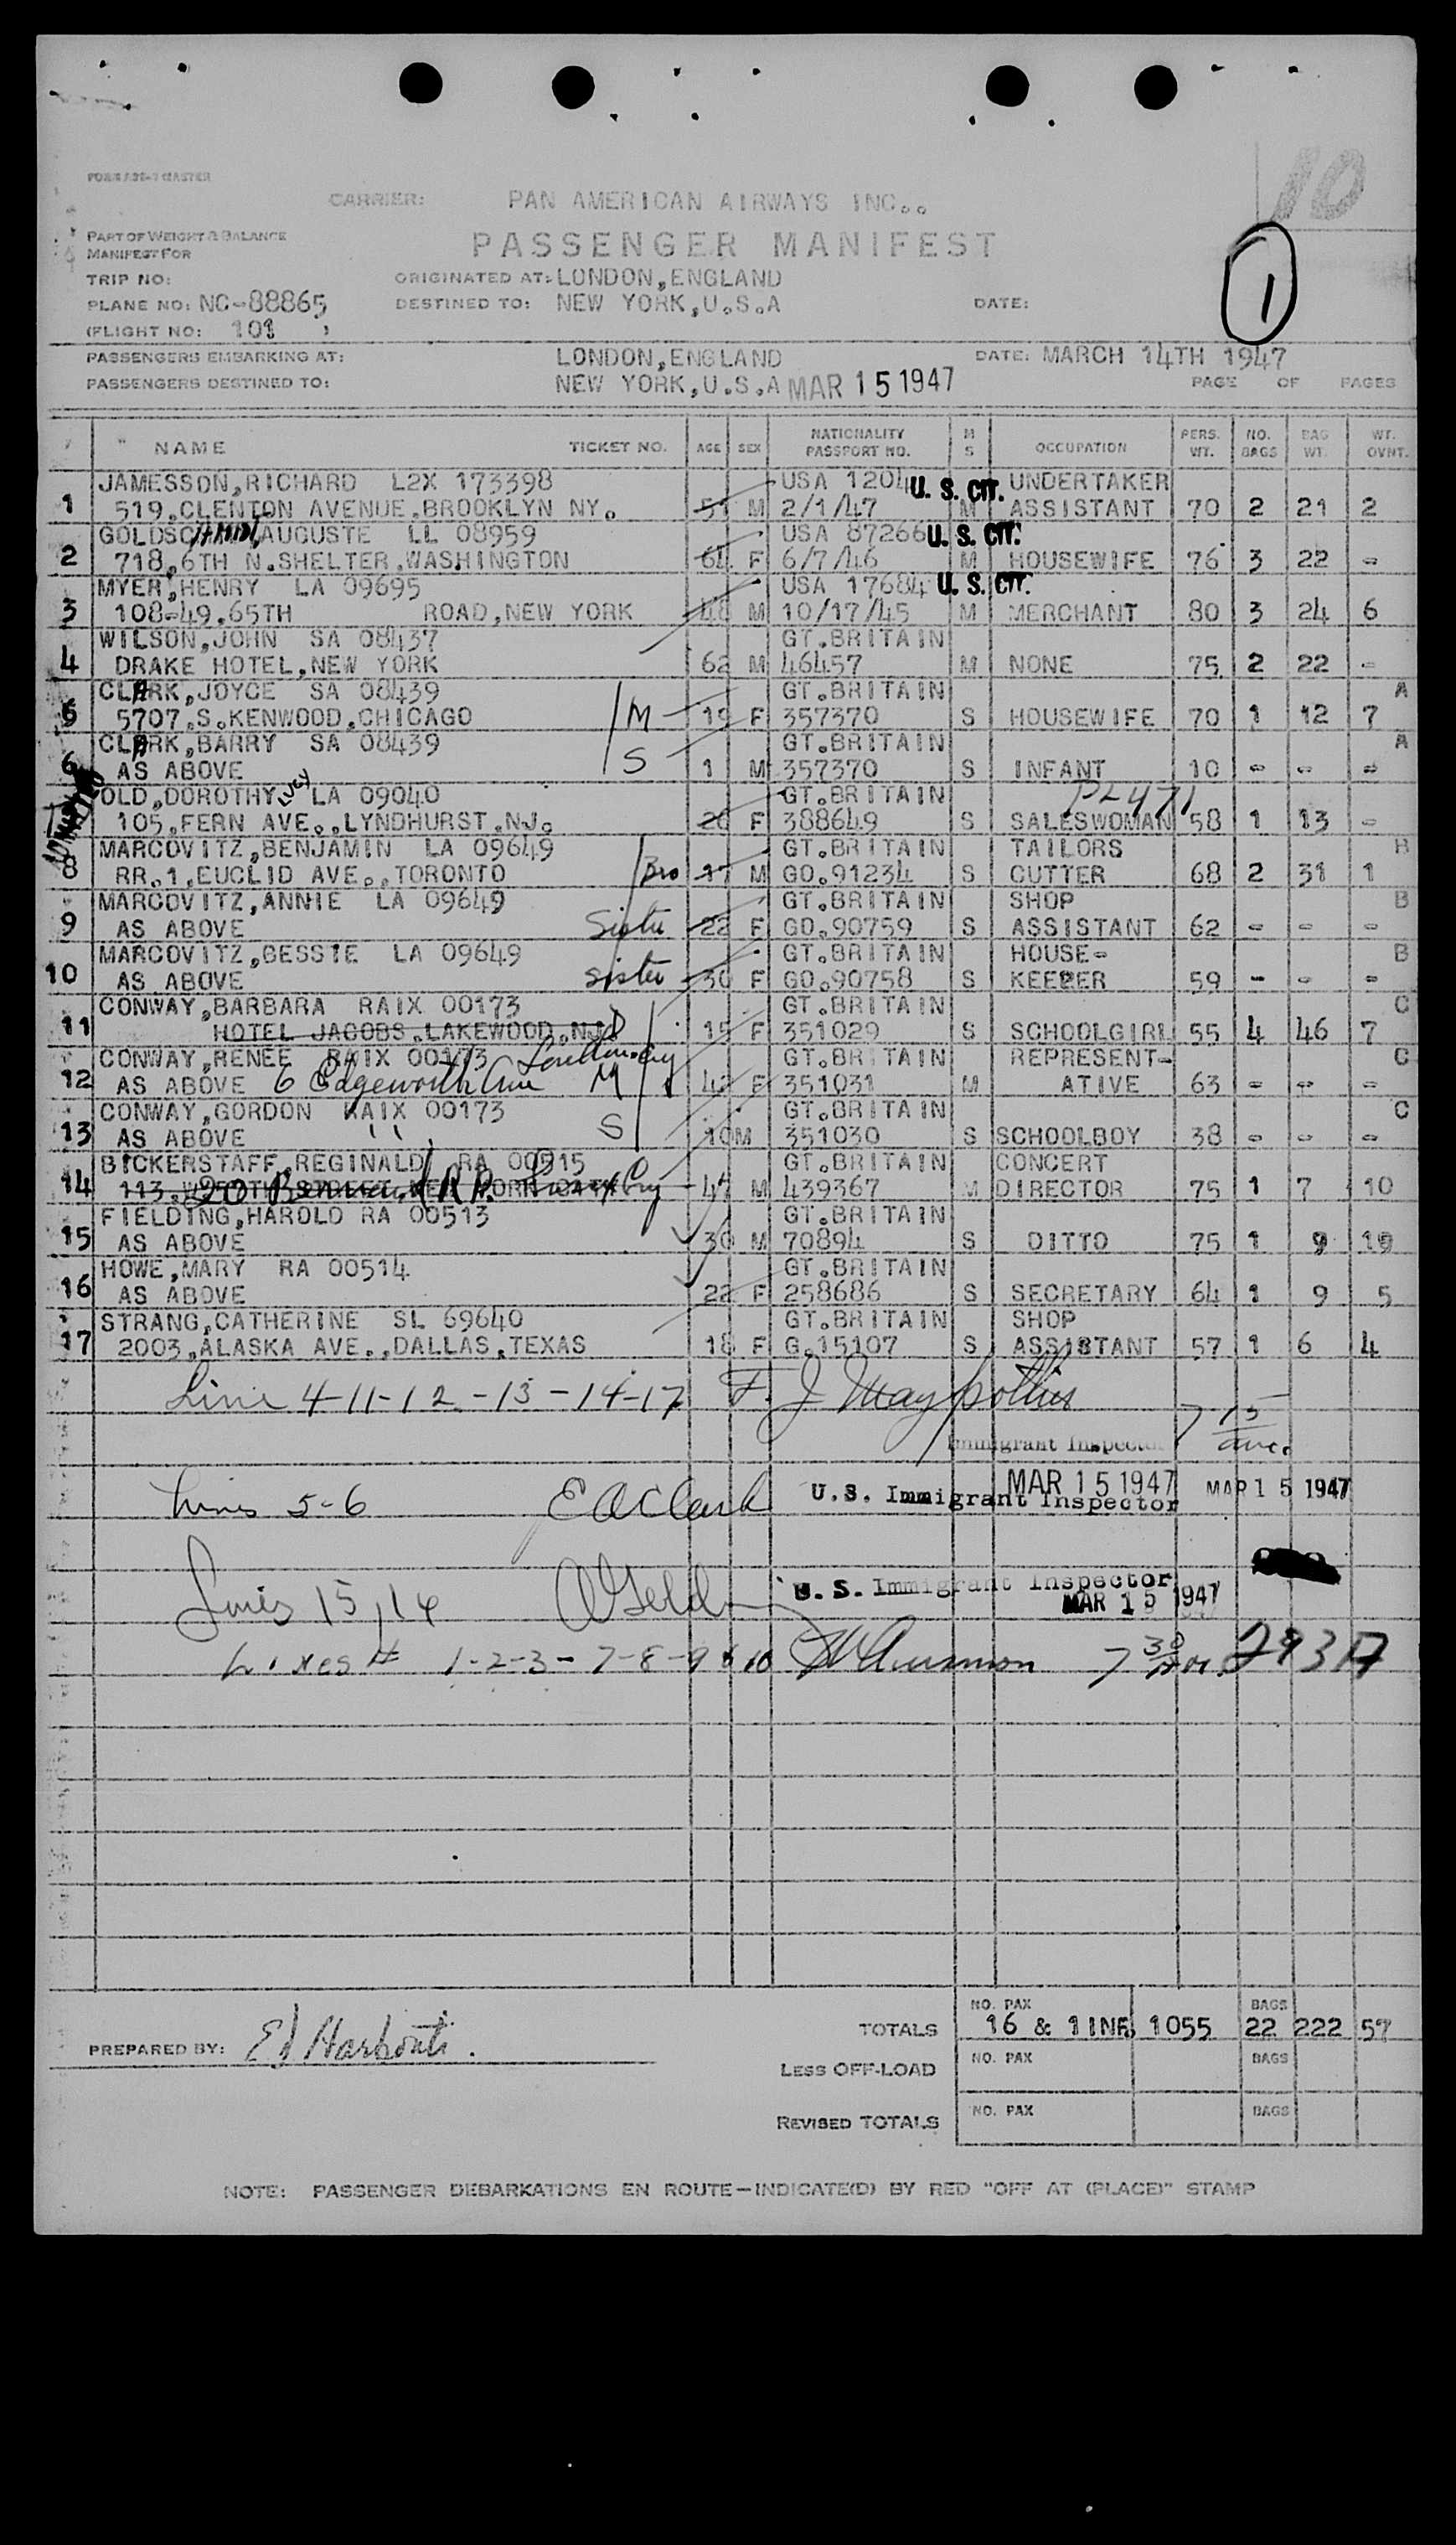 FORM ADS-7 MASTER
10
CARRIER: PAN AMERICAN AIRWAYS INC..
PART OF WEIGHT & BALANCE
MANIFEST FOR
PASSENGER MANIFEST
1
TRIP NO: ORIGINATED AT: LONDON,ENGLAND
PLANE NO: NC-88865 DESTINED TO: NEW YORK,U.S.A DATE:
(FLIGHT NO: 101 )
PASSENGERS EMBARKING AT: LONDON,ENGLAND DATE: MARCH 14TH 1947
PASSENGERS DESTINED TO: NEW YORK,U.S.A MAR 15 1947 PAGE OF PAGES
NAME TICKET NO. AGE SEX NATIONALITY PASSPORT NO. M S OCCUPATION PERS. WT. NO. BAGS BAG WT. WT. OVNT.
JAMESSON,RICHARD L2X 173398 USA 1204 U. S. CIT. UNDERTAKER
1 519,CLENTON AVENUE,BROOKLYN NY. 51 M 2/1/47 M ASSISTANT 70 2 21 2
GOLDSCHMIDT,AUGUSTE LL 08959 USA 87266 U. S. CIT.
2 718,6TH N.SHELTER,WASHINGTON 64 F 6/7/46 M HOUSEWIFE 76 3 22 -
MYER,HENRY LA 09695 USA 17684 U. S. CIT.
3 108-49,65TH ROAD,NEW YORK 48 M 10/17/45 M MERCHANT 80 3 24 6
WILSON,JOHN SA 08437 GT.BRITAIN
4 DRAKE HOTEL,NEW YORK 62 M 46457 M NONE 75 2 22 -
CLARK,JOYCE SA 08439 GT.BRITAIN A
5 5707,S.KENWOOD,CHICAGO M 19 F 357370 S HOUSEWIFE 70 1 12 7
CLARK,BARRY SA 08439 GT.BRITAIN A
6 AS ABOVE S 1 M 357370 S INFANT 10 - - -
OLD,DOROTHY LUCY LA 09040 GT.BRITAIN
105,FERN AVE.,LYNDHURST,NJ. 26 F 388649 S SALESWOMAN 58 1 13 -
MARCOVITZ,BENJAMIN LA 09649 GT.BRITAIN TAILORS B
8 RR.1,EUCLID AVE.,TORONTO Bro 17 M GO.91234 S CUTTER 68 2 31 1
MARCOVITZ,ANNIE LA 09649 GT.BRITAIN SHOP B
9 AS ABOVE Sister 22 F GO.90759 S ASSISTANT 62 - - -
MARCOVITZ,BESSIE LA 09649 GT.BRITAIN HOUSE- B
10 AS ABOVE sister 30 F GO.90758 S KEEPER 59 - - -
CONWAY,BARBARA RAIX 00173 GT.BRITAIN C
11 HOTEL JACOBS,LAKEWOOD,NJ D 15 F 351029 S SCHOOLGIRL 55 4 46 7
CONWAY,RENEE RAIX 00173 GT.BRITAIN REPRESENT- C
12 AS ABOVE 6 Edgeworth Ave M 42 F 351031 M ATIVE 63 - - -
CONWAY,GORDON RAIX 00173 GT.BRITAIN C
13 AS ABOVE S 10 M 351030 S SCHOOLBOY 38 - - -
BICKERSTAFF,REGINALD RA 00515 GT.BRITAIN CONCERT
14 113, 45 M 439367 M DIRECTOR 75 1 7 10
FIELDING,HAROLD RA 00513 GT.BRITAIN
15 AS ABOVE 30 M 70894 S DITTO 75 1 9 19
HOWE,MARY RA 00514 GT.BRITAIN
16 AS ABOVE 22 F 258686 S SECRETARY 64 1 9 5
STRANG,CATHERINE SL 69640 GT.BRITAIN SHOP
17 2003,ALASKA AVE.,DALLAS,TEXAS 18 F G.15107 S ASSISTANT 57 1 6 4
Line 4-11-12-13-14-17 F. J.
Immigrant Inspector
Lines 5-6 E A Clark U.S. Immigrant Inspector MAR 15 1947 MAR 15 1947
Lines 15,16 U.S. Immigrant Inspector MAR 15 1947
Lines # 1-2-3-7-8-9 & 10 7 30
TOTALS NO. PAX 16 & 1INF. 1055 BAGS 22 222 57
PREPARED BY:
LESS OFF-LOAD NO. PAX BAGS
REVISED TOTALS NO. PAX BAGS
NOTE: PASSENGER DEBARKATIONS EN ROUTE—INDICATE(D) BY RED "OFF AT (PLACE)" STAMP